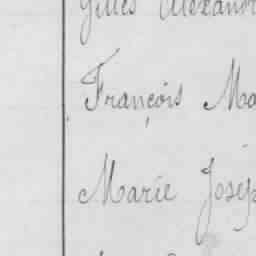 Gilles Alexand
François Ma
Marie Josep